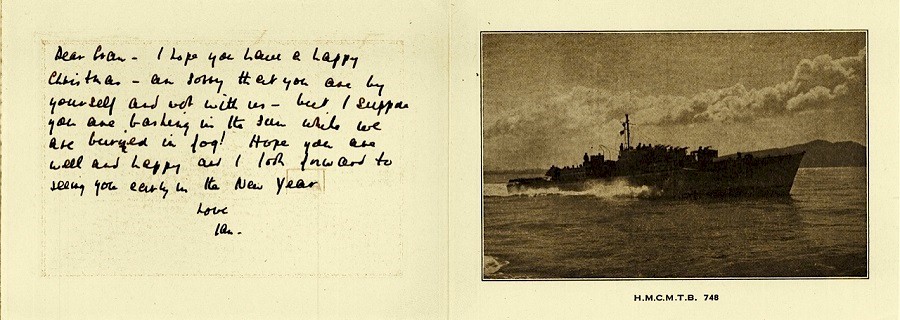 Dear Gran - I hope you have a happy
Christmas - am sorry that you are by
yourself and not with us - but I suppose
you are basking in the sun while we
are buried in fog! Hope you are
well and happy and I look forward to
seeing you early in the New Year
Love
Ian.
H.M.C.M.T.B. 748